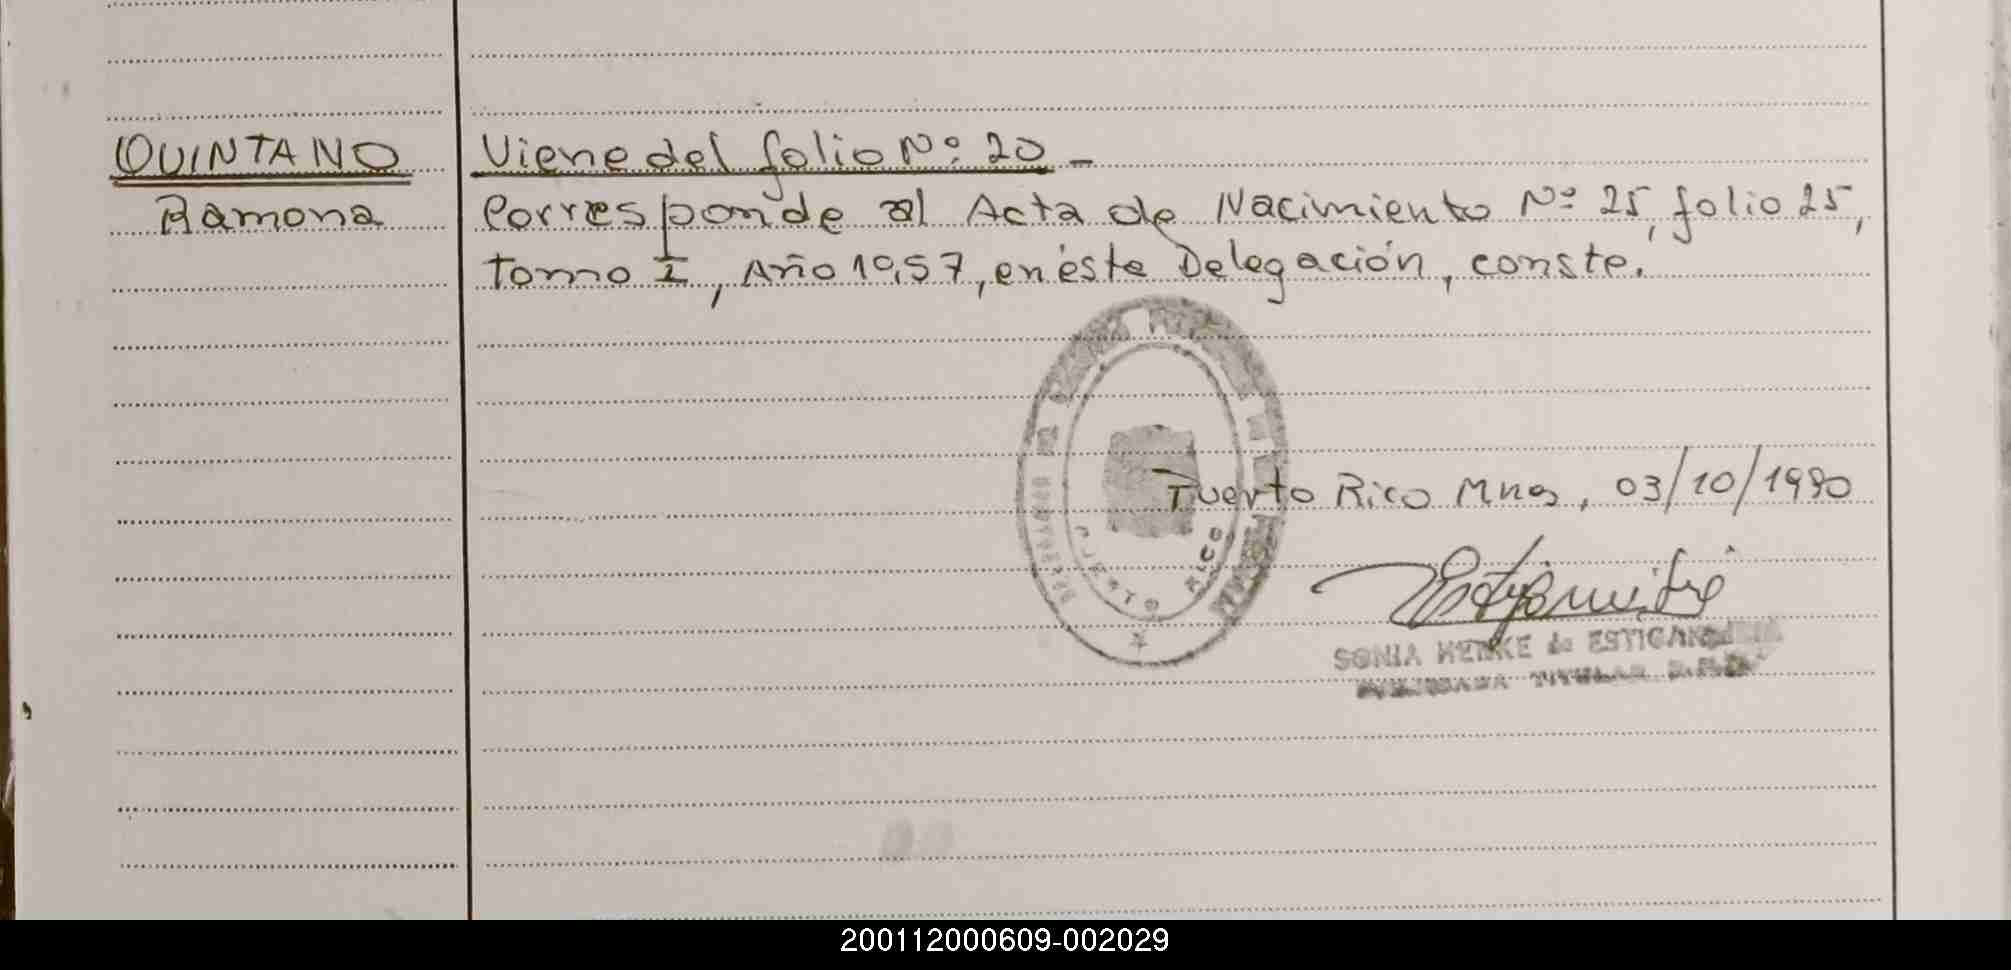 QUINTANO
Ramona
Viene del folio Nº 20 -
Corresponde al Acta de Nacimiento Nº 25, folio 25,
tomo I, Año 1957, en éste Delegación, conste.
Puerto Rico Mnes, 03/10/1990
PUERTO RICO
SONIA HENKE de ESTIGARRIBIA
TITULAR
200112000609-002029